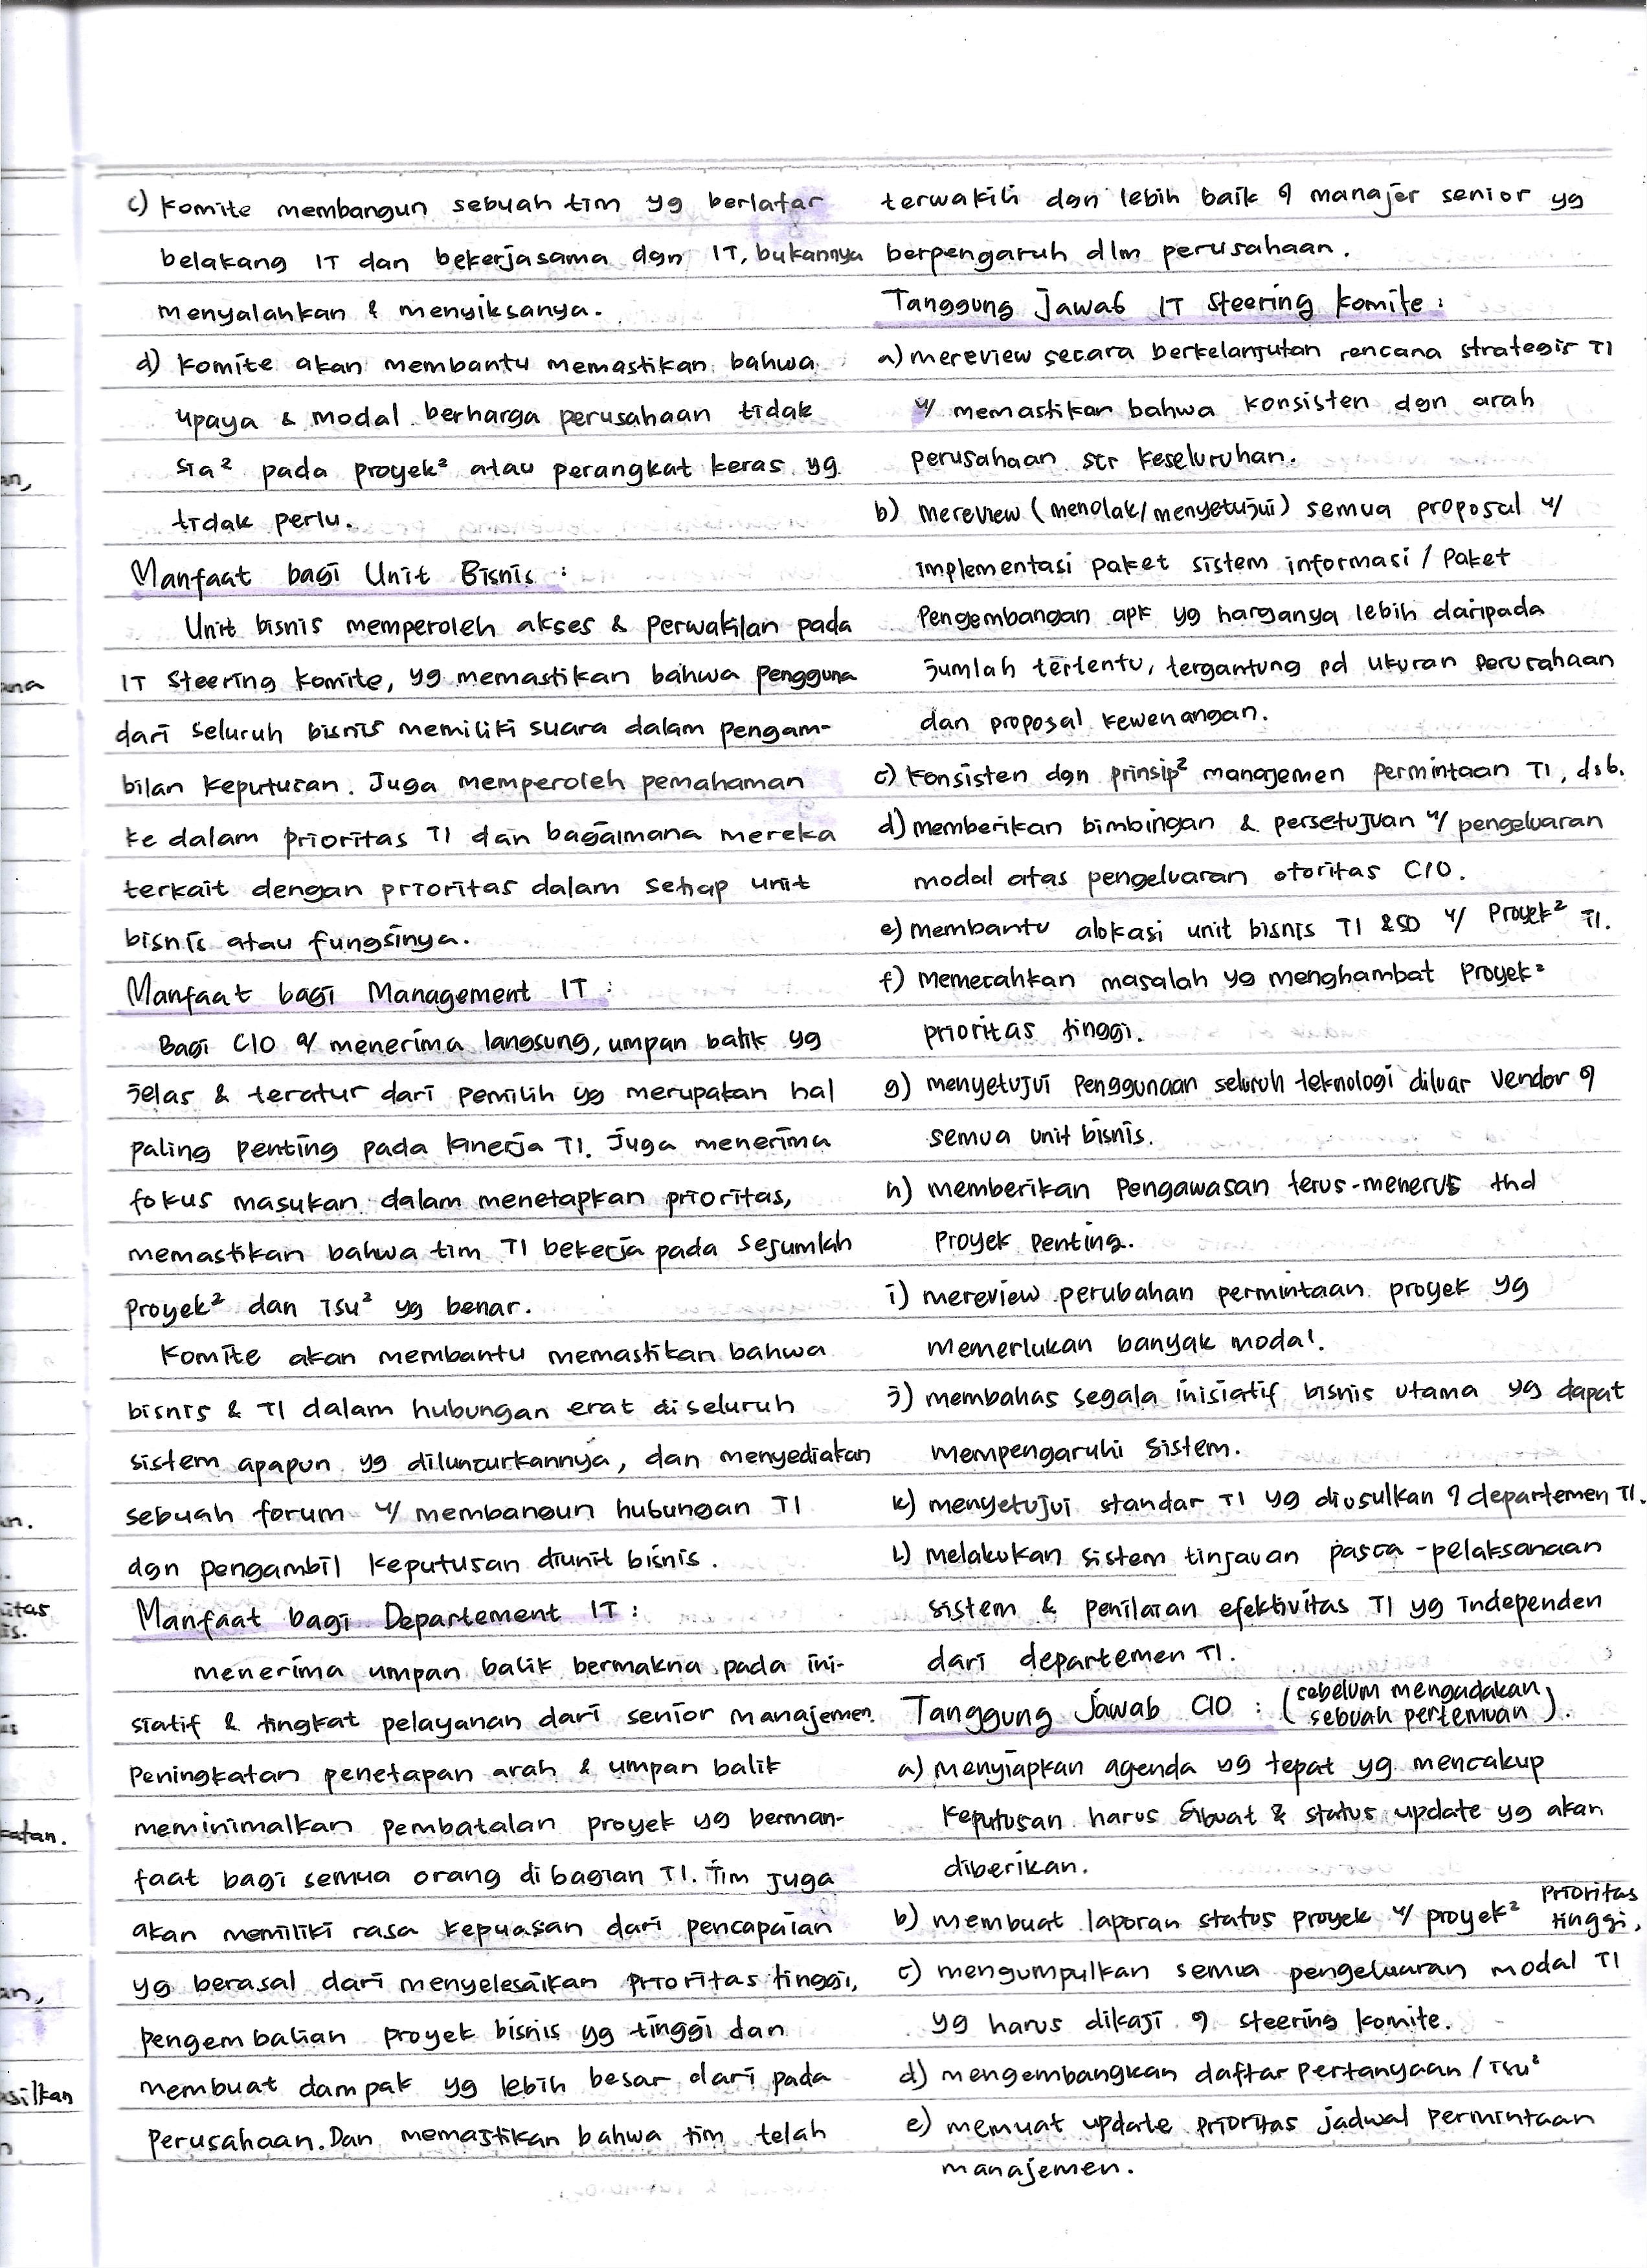 c) Komite membangun sebuah tim yg berlatar
belakang IT dan bekerjasama dgn IT, bukannya
menyalahkan & menyiksanya.
d) Komite akan membantu memastikan bahwa
upaya & modal berharga perusahaan tidak
sia² pada proyek² atau perangkat keras yg
tidak perlu.
Manfaat bagi Unit Bisnis :
Unit bisnis memperoleh akses & perwakilan pada
IT Steering Komite, yg memastikan bahwa pengguna
dari seluruh bisnis memiliki suara dalam pengam-
bilan keputusan. Juga memperoleh pemahaman
ke dalam prioritas TI dan bagaimana mereka
terkait dengan prioritas dalam setiap unit
bisnis atau fungsinya.
Manfaat bagi Management IT :
Bagi CIO u/ menerima langsung, umpan balik yg
jelas & teratur dari pemilih yg merupakan hal
paling penting pada kinerja TI. Juga menerima
fokus masukan dalam menetapkan prioritas,
memastikan bahwa tim TI bekerja pada sejumlah
proyek² dan isu² yg benar.
Komite akan membantu memastikan bahwa
bisnis & TI dalam hubungan erat diseluruh
sistem apapun yg diluncurkannya, dan menyediakan
sebuah forum u/ membangun hubungan TI
dgn pengambil keputusan diunit bisnis.
Manfaat bagi Departement IT :
menerima umpan balik bermakna pada ini-
siatif & tingkat pelayanan dari senior manajemen.
Peningkatan penetapan arah & umpan balik
meminimalkan pembatalan proyek yg berman-
faat bagi semua orang di bagian TI. Tim juga
akan memiliki rasa kepuasan dari pencapaian
yg berasal dari menyelesaikan prioritas tinggi,
pengembalian proyek bisnis yg tinggi dan
membuat dampak yg lebih besar dari pada
perusahaan. Dan memastikan bahwa tim telah
terwakili dgn lebih baik manajer senior yg
berpengaruh dlm perusahaan.
Tanggung jawab IT Steering Komite :
a) mereview secara berkelanjutan rencana strategis TI
u/ memastikan bahwa konsisten dgn arah
perusahaan scr keseluruhan.
b) mereview (menolak/menyetujui) semua proposal u/
implementasi paket sistem informasi / paket
pengembangan apk yg harganya lebih daripada
jumlah tertentu, tergantung pd ukuran perusahaan
dan proposal kewenangan.
c) Konsisten dgn prinsip² manajemen permintaan TI, dsb.
d) memberikan bimbingan & persetujuan u/ pengeluaran
modal atas pengeluaran otoritas CIO.
e) membantu alokasi unit bisnis TI & SD u/ proyek² TI.
f) memecahkan masalah yg menghambat proyek²
prioritas tinggi.
g) menyetujui penggunaan seluruh teknologi diluar vendor
semua unit bisnis.
h) memberikan pengawasan terus-menerus thd
proyek penting.
i) mereview perubahan permintaan proyek yg
memerlukan banyak modal.
j) membahas segala inisiatif bisnis utama yg dapat
mempengaruhi sistem.
k) menyetujui standar TI yg diusulkan departemen TI.
l) melakukan sistem tinjauan pasca-pelaksanaan
sistem & penilaian efektivitas TI yg independen
dari departemen TI.
Tanggung Jawab CIO : (sebelum mengadakan
sebuah pertemuan).
a) menyiapkan agenda yg tepat yg mencakup
keputusan harus dibuat & status update yg akan
diberikan.
b) membuat laporan status proyek u/ proyek² prioritas
tinggi.
c) mengumpulkan semua pengeluaran modal TI
yg harus dikaji steering komite.
d) mengembangkan daftar pertanyaan / isu²
e) memuat update prioritas jadwal permintaan
manajemen.